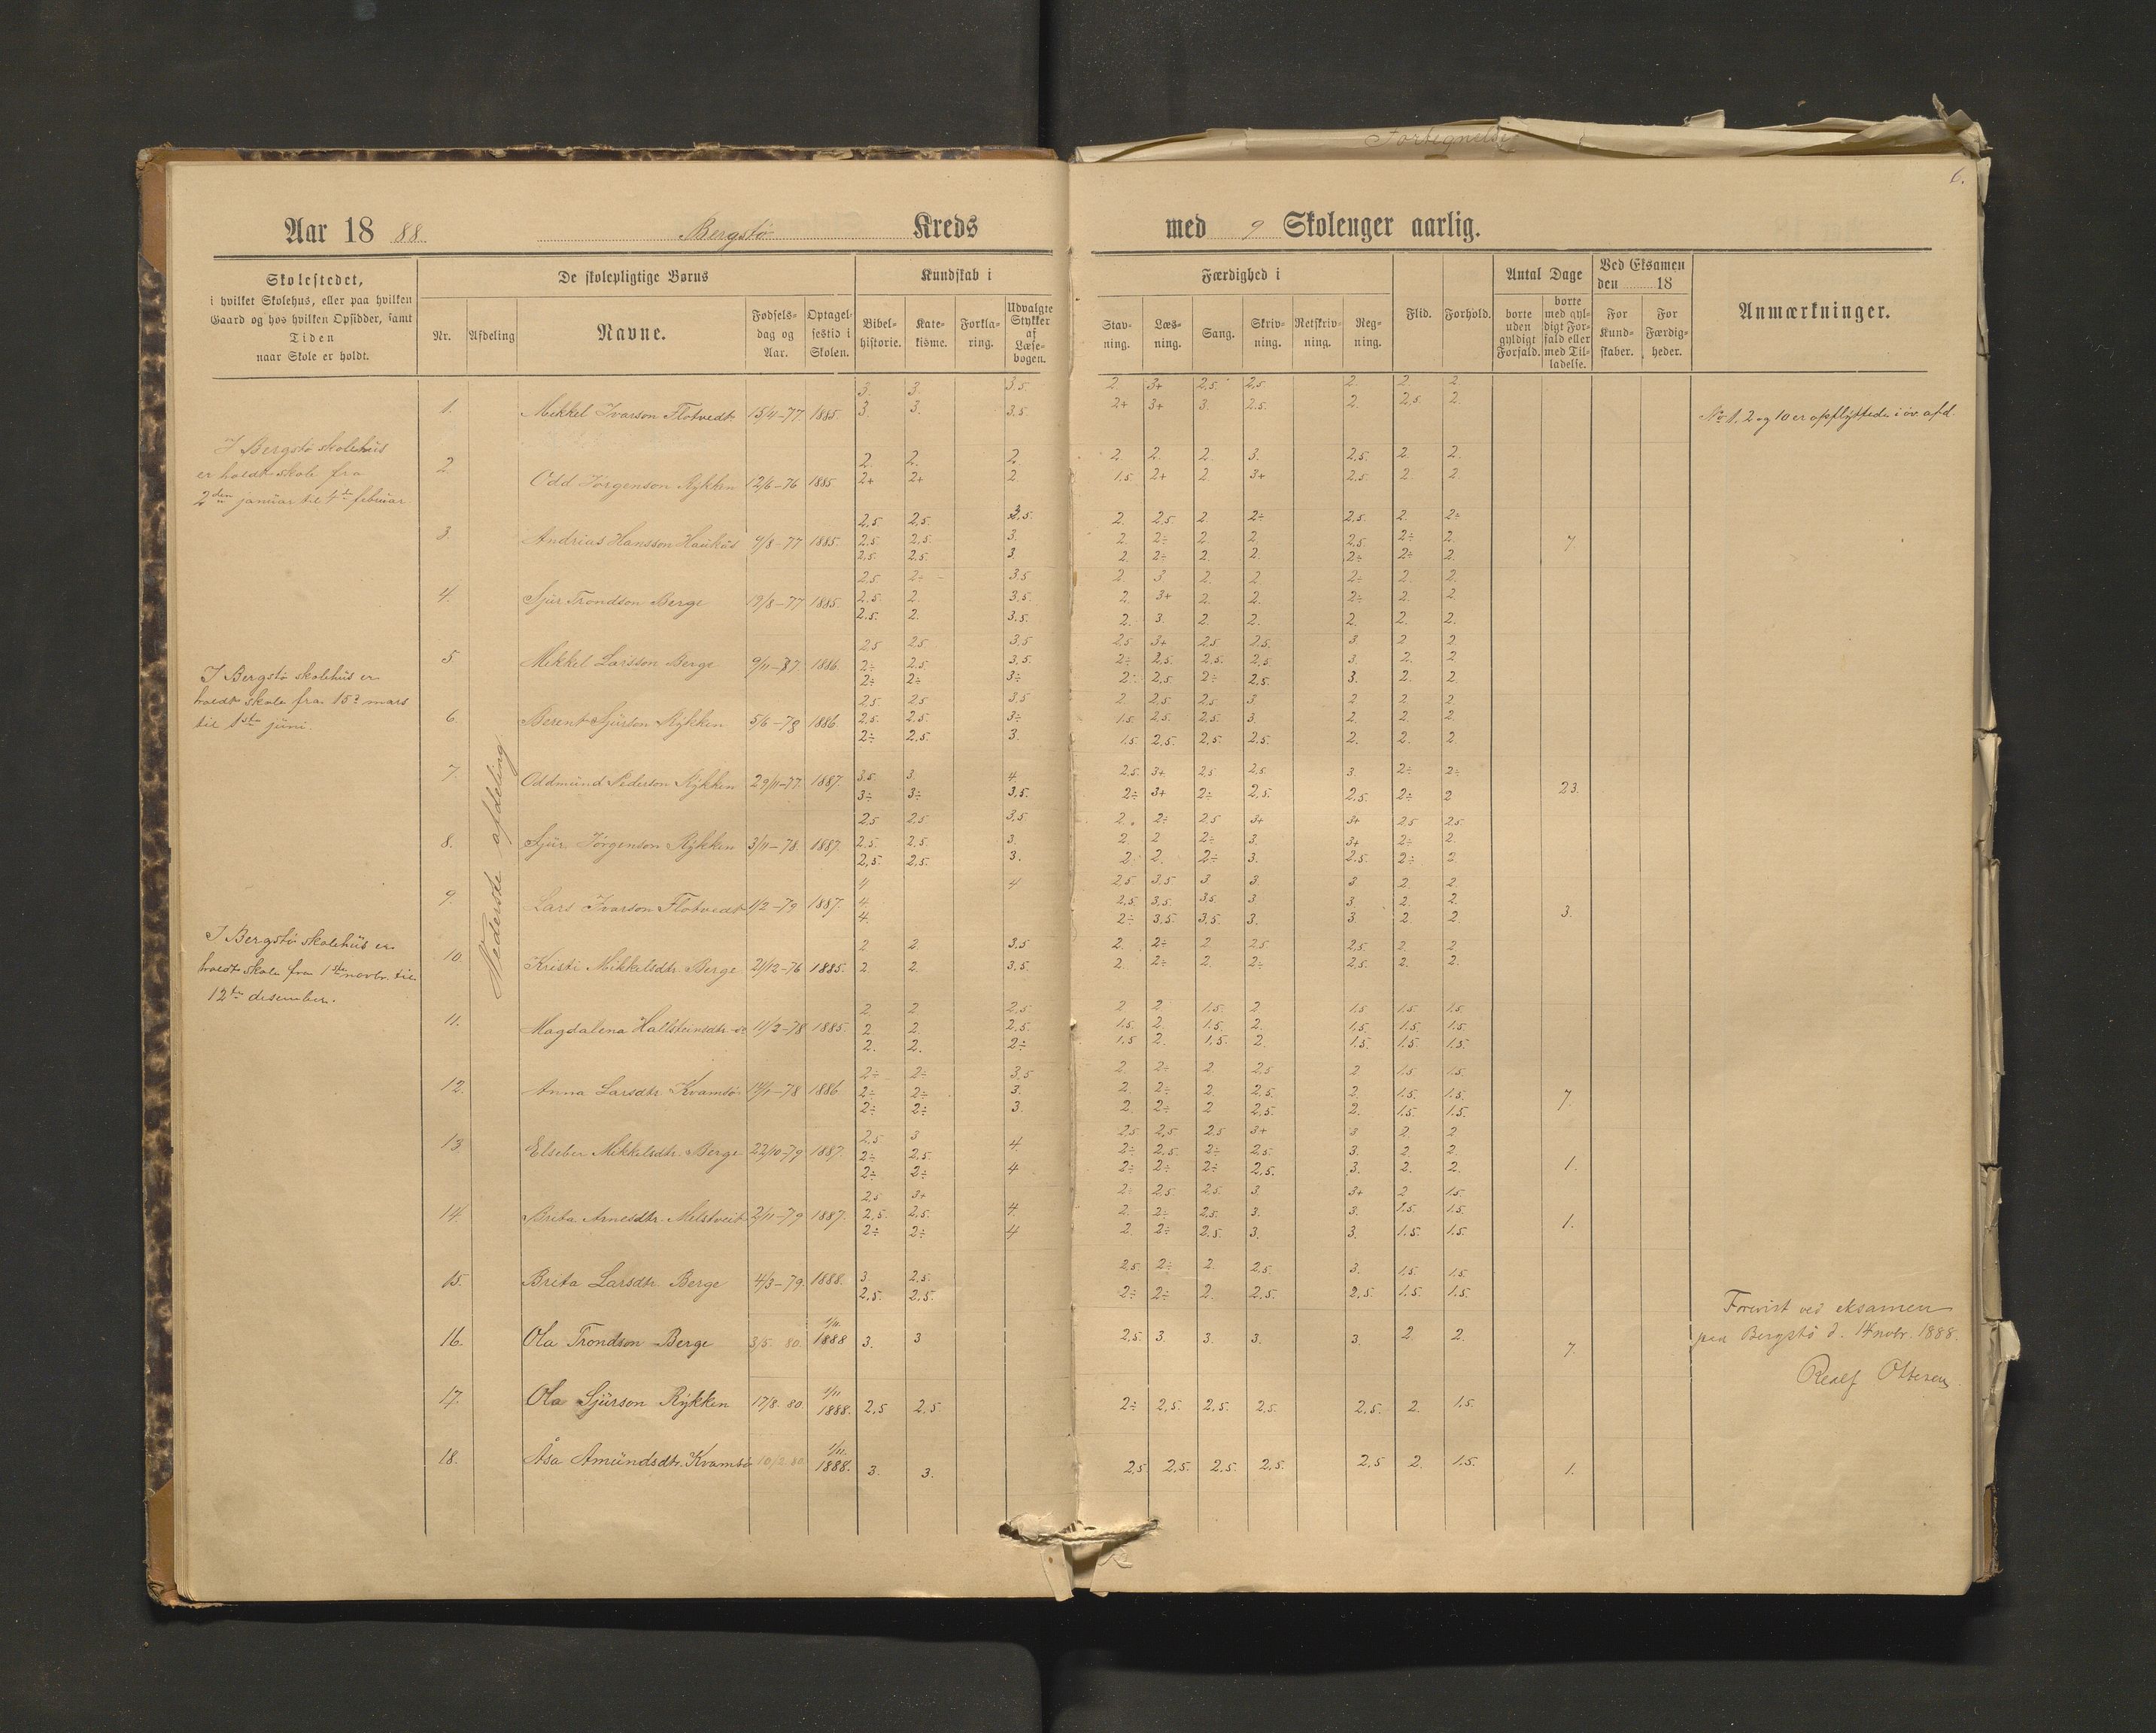 Fortegnelse
6.
Aar 1888 Bergstø Kreds med 9 Skoleuger aarlig.
Skolestedet,
i hvilket Skolehus, eller paa hvilken
Gaard og hos hvilken Opsidder, samt
Tiden
naar Skole er holdt.
De skolepligtige Børns
Nr.
Afdeling
Navne.
Fødsels-
dag og
Aar.
Optagel-
sestid i
Skolen.
Kundskab i
Bibel-
historie.
Kate-
kisme.
Forkla-
ring.
Udvalgte
Stykker
af
Læse-
bogen.
Færdighed i
Stav-
ning.
Læs-
ning.
Sang.
Skriv-
ning.
Retskriv-
ning.
Reg-
ning.
Flid.
Forhold.
Antal Dage
borte
uden
gyldigt
Forfald.
borte
med gyl-
digt For-
fald eller
med Til-
ladelse.
Ved Eksamen
den 18
For
Kund-
skaber.
For
Færdig-
heder.
Anmærkninger.
I Bergstø skolehus
er holdt skole fra
2den januar til 4de februar
I Bergstø skolehus er
holdt skole fra 15de mars
til 1ste juni.
I Bergstø skolehus er
holdt skole fra 1ste novbr. til
12te desember.
Nederste afdeling
3. 3. 3.5 2 3+ 2,5 2,5 2. 2. 2.
1. Mikkel Ivarson Flotvedt 15/4-77. 1885. 3. 3. 3.5. 2+ 3+ 3. 2.5. 2. 2.5. 2.
No 1, 2 og 10 er opflyttede i øv. afd.
2. 2. 2. 2. 2. 2. 3. 2.5. 2. 2.
2. Odd Jørgenson Rykken 12/6-76 1885 2+ 2+ 2. 1.5. 2+ 2. 3+ 2.5 2. 2.
2,5 2,5. 3,5. 2. 2,5. 2. 2÷ 2,5. 2. 2÷
3. Andrias Hansson Haukås 4/8-77 1885. 2.5. 2.5. 3. 2. 2÷ 2. 2. 2,5. 2÷ 2. 7
2.5. 2.5. 3. 2. 2÷ 2. 2. 2÷ 2÷ 2.
2.5 2÷ 3.5 2. 3 2. 2. 2÷ 2. 2.
4. Sjur Trondson Berge 19/8-77 1885. 2.5. 2. 3.5. 2. 3+ 2. 2. 2÷ 2. 2.
2.5. 2. 3.5. 2. 3. 2. 2. 2. 2. 2.
2,5 2.5 3.5 2.5 3+ 2.5 2.5. 3. 2 2
5 Mikkel Larsson Berge 9/11-77 1886. 2÷ 2.5 3.5. 2÷ 2,5. 2.5. 2,5 3. 2. 2
2÷ 2÷ 3÷ 2÷ 2,5 2÷ 2,5. 3. 2. 2.
2.5 2.5 3.5 2 2,5 2,5 3. 2 2 2
6. Berent Sjurson Rykken 5/6-78 1886. 2.5. 2.5. 3÷ 1.5. 2,5. 2.5. 3. 2. 2. 2.
2÷ 2.5 3. 1.5. 2.5. 2.5. 2.5. 2. 2. 2
7. Oddmund Pederson Rykken 29/11-77. 1887. 3.5 3. 4. 2,5. 3+ 2,5 2,5. 3. 2÷ 2÷ 23.
3÷ 3÷ 3.5. 2÷ 3+ 2÷ 2,5. 2,5. 2÷ 2
2.5 2,5 3,5 2. 2÷ 2,5 3+ 3+ 2,5 2.5.
8. Sjur Jørgenson Rykken 3/11-78. 1887. 2.5. 2.5. 3. 2. 2 2÷ 3. 3+ 2÷ 2.
2,5. 2,5. 3. 2. 2. 2÷ 3. 2.5. 2÷ 2.
4 4 2.5 3.5 3 3. 3 2. 2.
9. Lars Ivarson Flotvedt 4/2-79 1887. 4. 2,5. 3.5. 3.5. 3 3. 2. 2. 3.
4. 2÷ 3,5. 3,5. 3. 3. 2. 2
2 2. 3.5 2. 2÷ 2 2,5 2,5. 2. 2
10. Kristi Mikkelsdtr. Berge 21/12-76 1885. 2. 2. 3.5. 2. 2÷ 2. 2÷ 2.5. 2. 2.
2. 2. 2,5 2 2 1.5. 2 1.5 1.5. 1.5.
11. Magdalena Hallsteinsdtr 11/2-78 1885. 2. 2. 2.5. 1.5. 2. 1.5. 2. 1.5. 1.5. 1.5.
2. 2. 2÷ 1,5 2. 1,5. 2. 1.5. 1.5. 1.5.
2÷ 2÷ 3.5 2. 2÷ 2. 2.5 2 1.5 1.5.
12. Anna Larsdtr. Kvamsø 14/1-78 1886. 2÷ 2÷ 3. 2. 2÷ 2. 2.5. 2. 1.5. 1.5. 7
2÷ 2÷ 3. 2. 2÷ 2 2.5. 2. 1.5. 1.5.
2,5 3 2.5 2,5 2.5 3+ 3 2. 2
13. Elseber Mikkelsdtr. Berge 22/10-79 1887. 2÷ 2,5 4. 2÷ 2.5. 2÷ 2.5. 3. 2. 2. 1.
2÷ 2÷ 4 2÷ 2÷ 2÷ 2,5. 3. 2. 2.
2,5 3+ 2÷ 2.5 2.5. 3. 3+ 2 1.5.
14. Brita Arnesdtr. Melstveit 2/11-79 1887. 2,5. 2,5. 4. 2. 2÷ 2,5. 3. 3. 1.5 1.5. 1.
2÷ 2÷ 4 2. 2÷ 2.5. 3. 3. 1.5. 1.5.
15. Brita Larsdtr. Berge 4/3-79. 1888. 3. 2,5. 2,5 2÷ 2. 2,5 3. 1.5. 1.5.
2,5. 2.5. 2÷ 2÷ 2. 2.5. 2,5 1.5. 1.5.
16. Ola Trondson Berge 3/5. 80. 1/11. 1888 3. 3 2,5 3. 3. 3. 3. 2. 2. 7.
17. Ola Sjurson Rykken 17/8 80. 1/11 1888. 2,5 2.5 2÷ 2,5. 2,5. 2,5. 2,5. 2. 1.5.
18. Åsa Amundsdtr. Kvamsø 10/2 80 1/11. 1888. 3. 3. 2,5 2,5. 2,5. 2,5. 2,5 2. 1.5. 1.
Forevist ved eksamen
paa Bergstø d. 14 novbr. 1888.
Reolf Ottesen